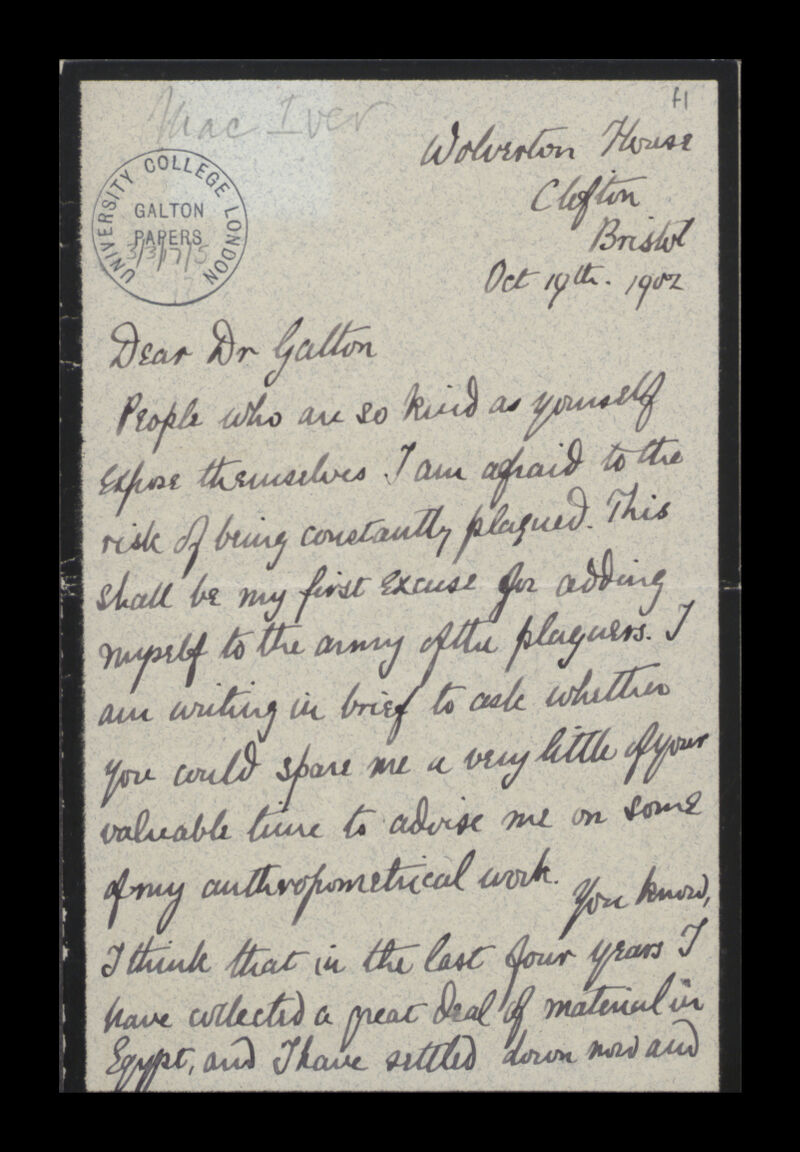 f1
Mac Iver
Wolverton House
Clifton
Bristol
Oct 19th. 1902
UNIVERSITY COLLEGE LONDON
GALTON
PAPERS
3/3/17/5
Dear Dr Galton
People who are so kind as yourself
expose themselves I am afraid to the
risk of being constantly plagued. This
shall be my first excuse for adding
myself to the army of the plaguers. I
am writing in brief to ask whether
you could spare me a very little of your
valuable time to advise me on some
of my anthropometrical work. You know,
I think that in the last four years I
have collected a great deal of material in
Egypt, and I have settled down now and